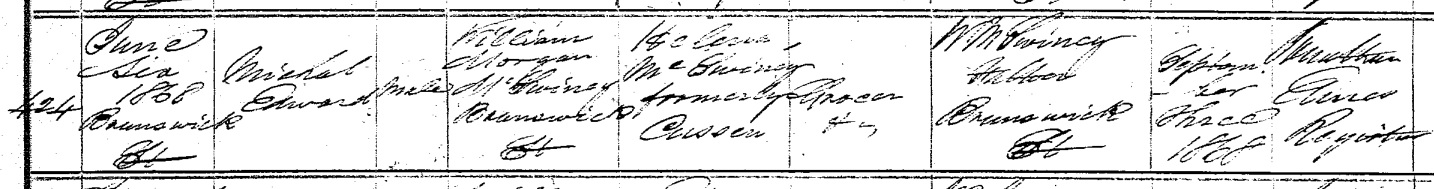 424
June
Six
1868
Brunswick
St
Michal
Edward
Male
William
Morgan
McSwiney
Brunswick
St
Helena
McSwiney
formerly
Cussen
Grocer
&c
W M Swiney
Father
Brunswick
St
Septem
-ber
Three
1868
Registrar